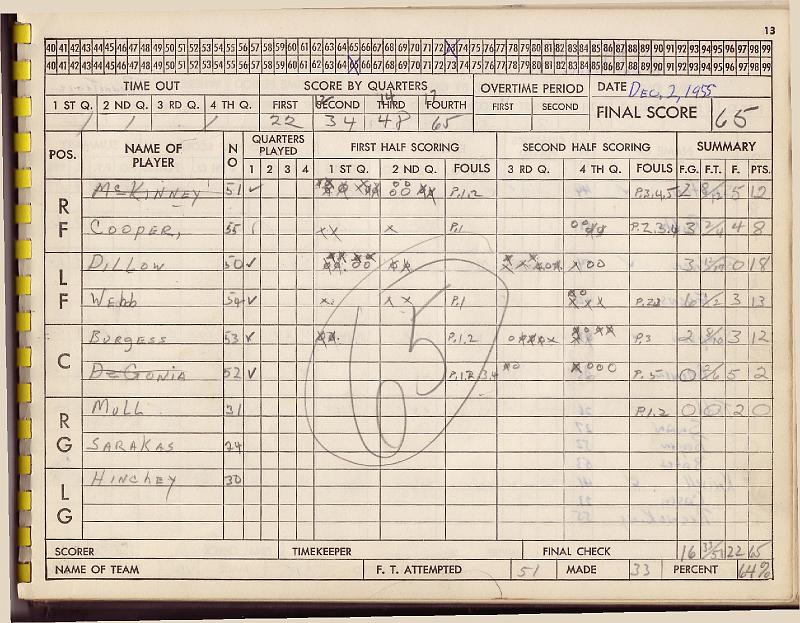 13
40 41 42 43 44 45 46 47 48 49 50 51 52 53 54 55 56 57 58 59 60 61 62 63 64 65 66 67 68 69 70 71 72 73 74 75 76 77 78 79 80 81 82 83 84 85 86 87 88 89 90 91 92 93 94 95 96 97 98 99
40 41 42 43 44 45 46 47 48 49 50 51 52 53 54 55 56 57 58 59 60 61 62 63 64 65 66 67 68 69 70 71 72 73 74 75 76 77 78 79 80 81 82 83 84 85 86 87 88 89 90 91 92 93 94 95 96 97 98 99
TIME OUT SCORE BY QUARTERS OVERTIME PERIOD DATE Dec. 2, 1955
1 ST Q. 2 ND Q. 3 RD Q. 4 TH Q. FIRST SECOND THIRD FOURTH FIRST SECOND FINAL SCORE 65
22 34 48 65
POS. NAME OF PLAYER NO QUARTERS PLAYED FIRST HALF SCORING SECOND HALF SCORING SUMMARY
1 2 3 4 1 ST Q. 2 ND Q. FOULS 3 RD Q. 4 TH Q. FOULS F.G. F.T. F. PTS.
RF McKinney 51 P,1,2 P,3,4,5 2 5 12
Cooper, 55 P,1 3 4 8
LF Dillow 50 3 0 18
Webb 54 P,1 3 13
C Burgess 53 P,1,2 P,3 2 8/10 3 12
DeGonia 52 P,1,2,3,4 P, 5 0 2/6 5 2
RG Mull 31 P,1,2 0 0 2 0
Sarakas 24
LG Hinchey 30
65
SCORER TIMEKEEPER FINAL CHECK 16 33/51 22 65
NAME OF TEAM F. T. ATTEMPTED 51 MADE 33 PERCENT 64%